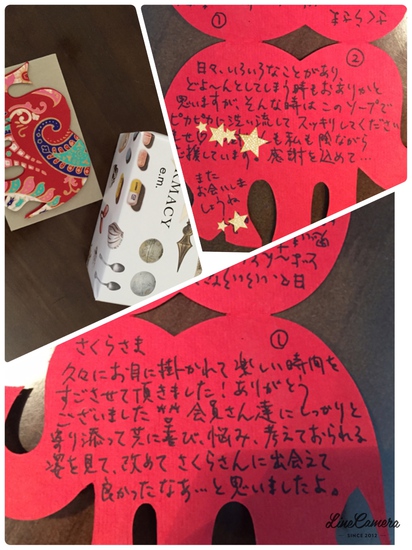 ARMACY
e.m.
①
さくらさま
久々にお目に掛かれて楽しい時間を
すごさせて頂きました！ありがとう
ございました** 会員さん達にしっかりと
寄り添って共に喜び、悩み、考えておられる
姿を見て、改めてさくらさんに出会えて
良かったなあ…と思いましたよ。
①
②
日々、いろいろなことがあり、
どよ〜んとしてしまう時もおありかと
思いますが、そんな時はこのソープで
ピカピカに洗い流してスッキリしてください
も私も陰ながら
援しています。感謝を込めて…
また
お会いしま
しょうね
LineCamera
SINCE 2012